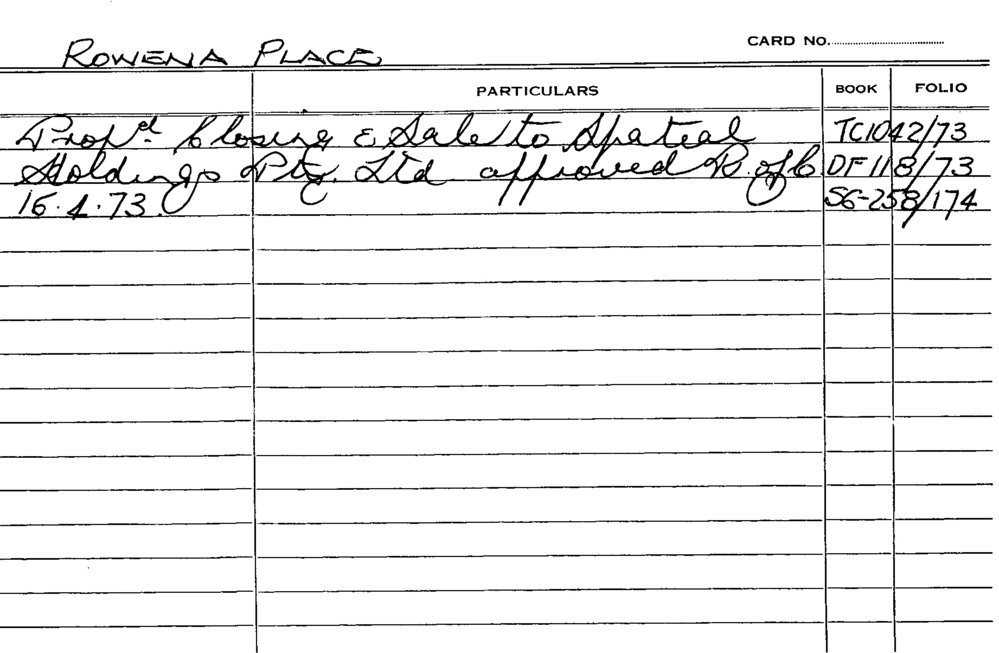 ROWENA PLACE
CARD NO.
PARTICULARS BOOK FOLIO
Prop.d Closing & Sale to Spateal TC1042/73
Holdings Pty. Ltd. approved R. of C DF 118/73
16.4.73. S6-258/174